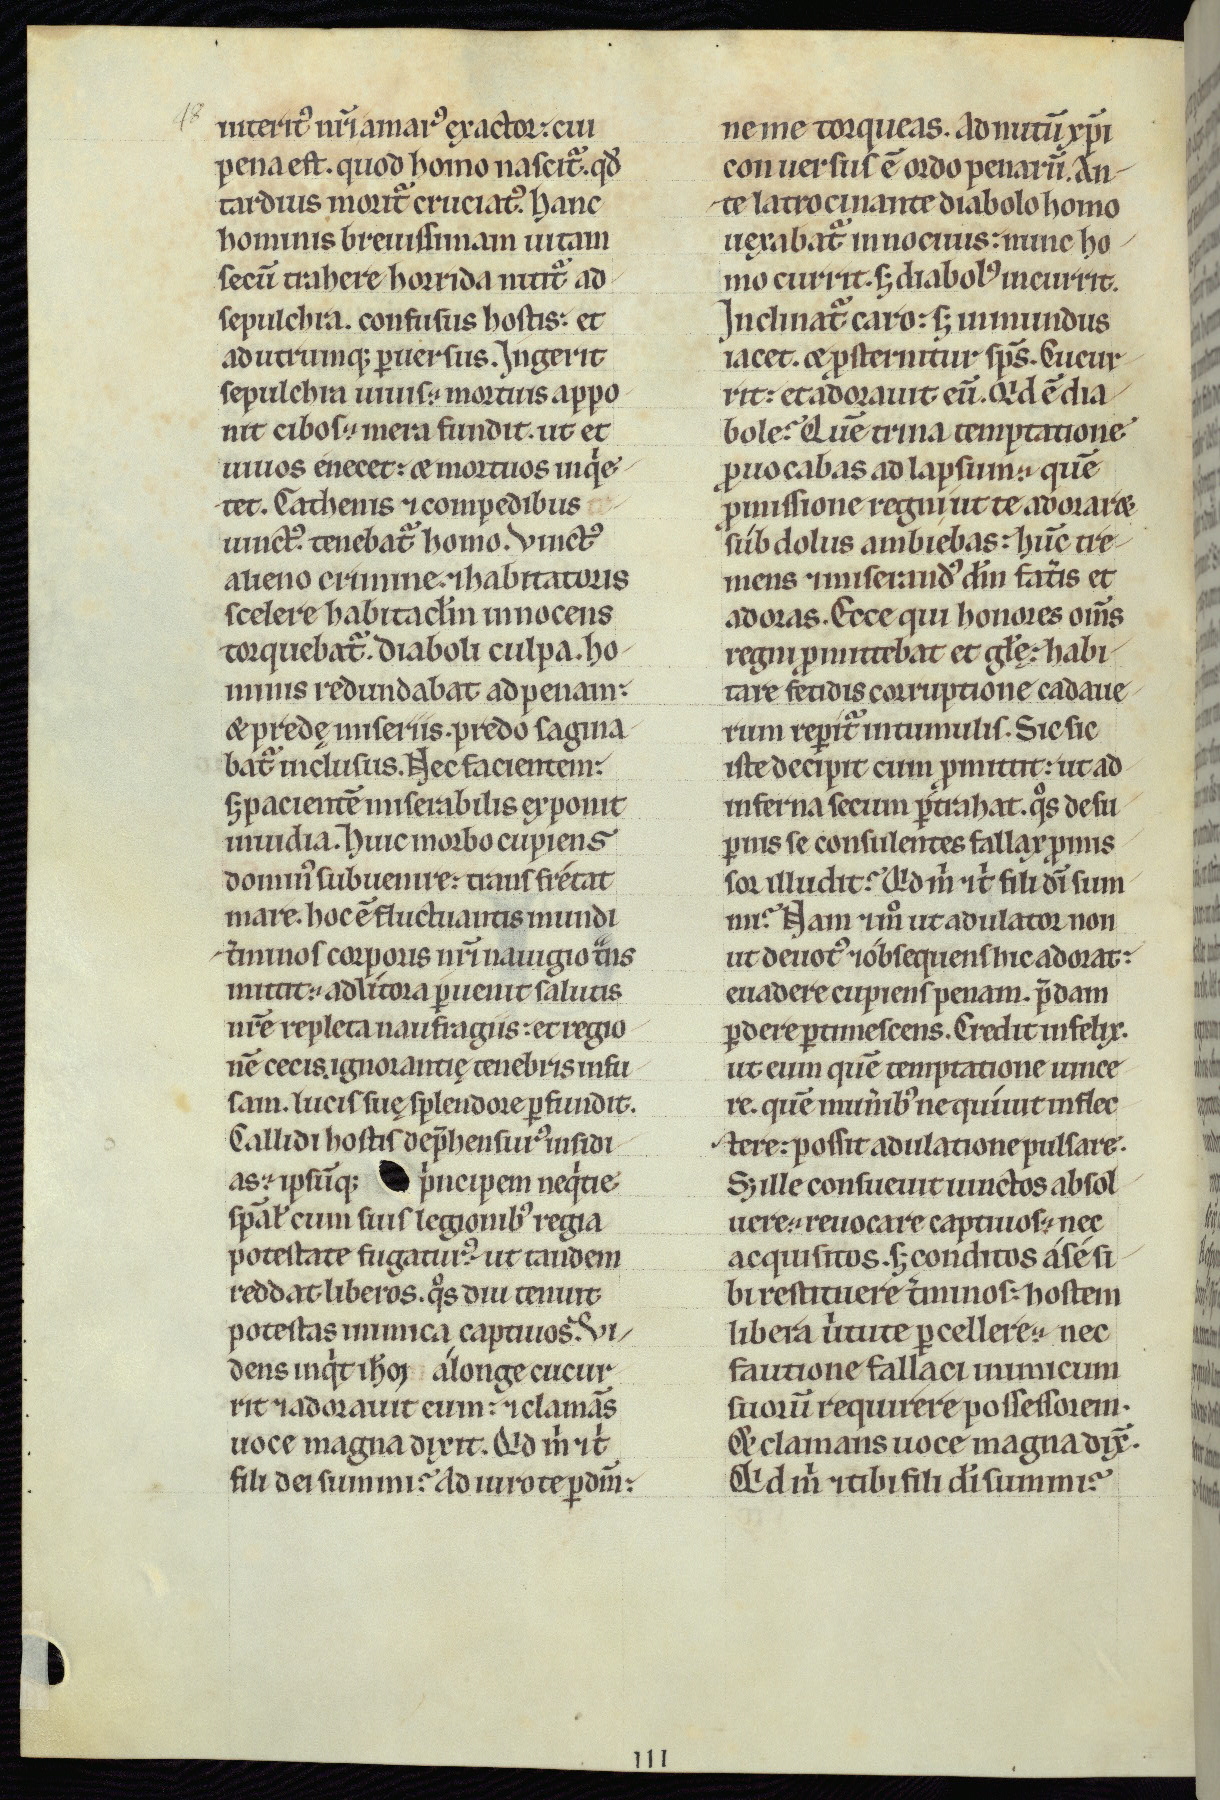 48
interit᾿ nr̄i amar᾿ exactor: cui
pena est. quod homo nascit̃. qd̄
tardius morit̃ cruciat᾿. hanc
hominis breuissimam uitam
secū trahere horrida nitit̃ ad
sepulchra. confusus hostis: et
ad utrumq; ꝑuersus. Ingerit
sepulchra uiuis: mortuis appo
nit cibos: mera fundit. ut et
uiuos enecet: & mortuos inqͥe
tet. Cathenis ⁊ compedibus
uinct᾿. tenebat̃ homo. Vinct᾿
alieno crimine. ⁊ habitatoris
scelere habitacl̄m innocens
torquebat̃. diaboli culpa. ho
minis redundabat ad penam:
& predę miseriis. predo sagina
bat̃ inclusus. Nec facientem:
sꝫ pacientē miserabilis exponit
inuidia. Huic morbo cupiens
domin᾿ subuenire: transfretat
mare. hoc ē fluctuantis mundi
t̄minos corporis nr̄i nauigio t̃ns
mittit: ad litora ꝑuenit salutis
nr̄e repleta naufragiis: et regio
nē cecis ignorantię tenebris infu
sam. lucis suę splendore ꝑfundit.
Callidi hostis dep̄hensur᾿ insidi
as: ipsūq; pͥncipem neqͥtie
sp̄al̄ cum suis legionib᾿ regia
potestate fugatur᾿: ut tandem
reddat liberos. qͦs diu tenuit
potestas inimica captiuos. Vi
dens inqͥt ihm̄ a longe cucur
rit ⁊ adorauit eum: ⁊ clamās
uoce magna dixit. Qͥd m̄ ⁊ t̄
fili dei summi? Adiuro te ꝑ dm̄:
ne me torqueas. Ad nutū xp̄i
conuersus ē ordo penarū. An
te latrocinante diabolo homo
uexabat̃ innocuus: nunc ho
mo currit. sꝫ diabol᾿ incurrit.
Inclinat̃ caro: sꝫ inmundus
iacet. & ꝓsternitur sp̄s. Cucur
rit: et adorauit eū. Qͥd ē dia
bole? Quē trina temptatione
ꝓuocabas ad lapsum: quē
ꝓmissione regni ut te adoraret
subdolus ambiebas: hūc tre
mens ⁊ miserand᾿ dn̄m fat̄is et
adoras. Ecce qui honores om̄s
regni ꝓmittebat et gl̄ę: habi
tare fetidis corruptione cadaue
rum reperit̃ in tumulis. Sic sic
iste decipit cum ꝓmittit: ut ad
inferna secum ꝑtrahat. qͦs de su
ꝑnis se consulentes fallax ꝓmis
sor illudit? Qͥd m̄ ⁊ t̄ fili dī sum
mi? Nam ⁊ mͦ ut adulator non
ut deuot᾿ ⁊ obsequens hic adorat:
euadere cupiens penam. p̄dam
ꝑdere ꝑtimescens. Credit infelix.
ut eum quē temptatione uince
re. quē munīb᾿ nequiuit inflec
tere: possit adulatione pulsare.
Sꝫ ille consueuit uinctos absol
uere: reuocare captiuos: nec
acquisitos. sꝫ conditos a se si
bi restituere t̄minos: hostem
libera ūtute ꝑcellere: nec
fautione fallaci inimicum
suorū requirere possessorem.
Et clamans uoce magna dix̄.
Qͥd m̄ ⁊ tibi fili dī summi?
III